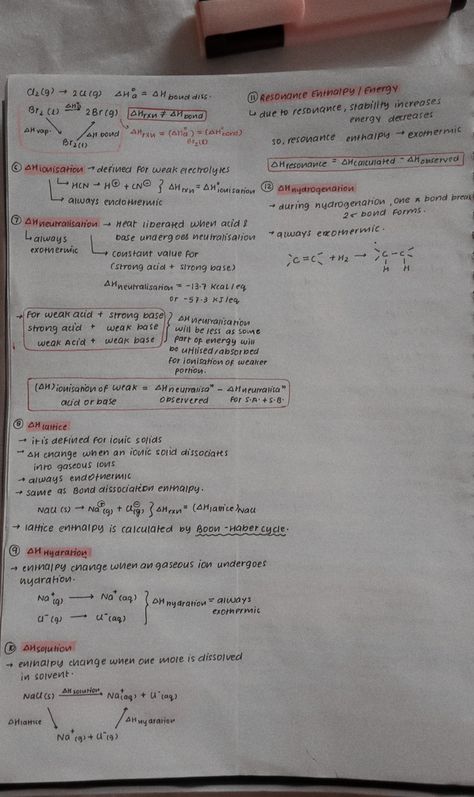 Cl₂(g) → 2Cl(g) ΔH°a = ΔH bond diss.
Br₂(l) ΔH°a → 2Br(g) ΔHrxn ≠ ΔHbond
ΔHvap. ΔH bond
Br₂(l)
ΔHrxn = (ΔH°a) = (ΔH°bond)
Br₂(l)
⑥ ΔHionisation → defined for weak electrolytes
↳ HCN → H⊕ + CN⊖ } ΔHrxn = ΔH°ionisation
↳ always endothermic
⑦ ΔHneutralisation → Heat liberated when acid &
↳ always base undergoes neutralisation
exothermic ↳ constant value for
(strong acid + strong base)
ΔHneutralisation = -13.7 Kcal/eq
or -57.3 KJ/eq
→ For weak acid + strong base
strong acid + weak base
weak Acid + weak base
ΔHneutralisation
will be less as some
part of energy will
be utilised/absorbed
for ionisation of weaker
portion.
(ΔH)ionisation of weak = ΔHneutralisaⁿ - ΔHneutralisaⁿ
acid or base observered for S.A. + S.B.
⑧ ΔHlattice
→ it is defined for ionic solids
→ ΔH change when an ionic solid dissociates
into gaseous ions
→ always endothermic
→ same as Bond dissociation enthalpy.
NaCl (s) → Na⊕(g) + Cl⊖(g) } ΔHrxn = (ΔHlattice)NaCl
→ lattice enthalpy is calculated by Boon-Haber cycle.
⑨ ΔHHydration
→ enthalpy change when an gaseous ion undergoes
hydration.
Na⁺(g) → Na⁺(aq) } ΔHhydration = always
Cl⁻(g) → Cl⁻(aq) exothermic
⑩ ΔHsolution
→ enthalpy change when one more is dissolved
in solvent.
NaCl(s) ΔHsolution → Na⁺(aq) + Cl⁻(aq)
ΔHlattice ΔHhydration
Na⁺(g) + Cl⁻(g)
⑪ Resonance Enthalpy/Energy
↳ due to resonance, stability increases
energy decreases
so, resonance enthalpy → exothermic
ΔHresonance = ΔHcalculated - ΔHobserved
⑫ ΔHhydrogenation
→ during hydrogenation, one π bond break
2σ bond forms.
→ always exothermic.
C=C + H₂ → C-C
H H